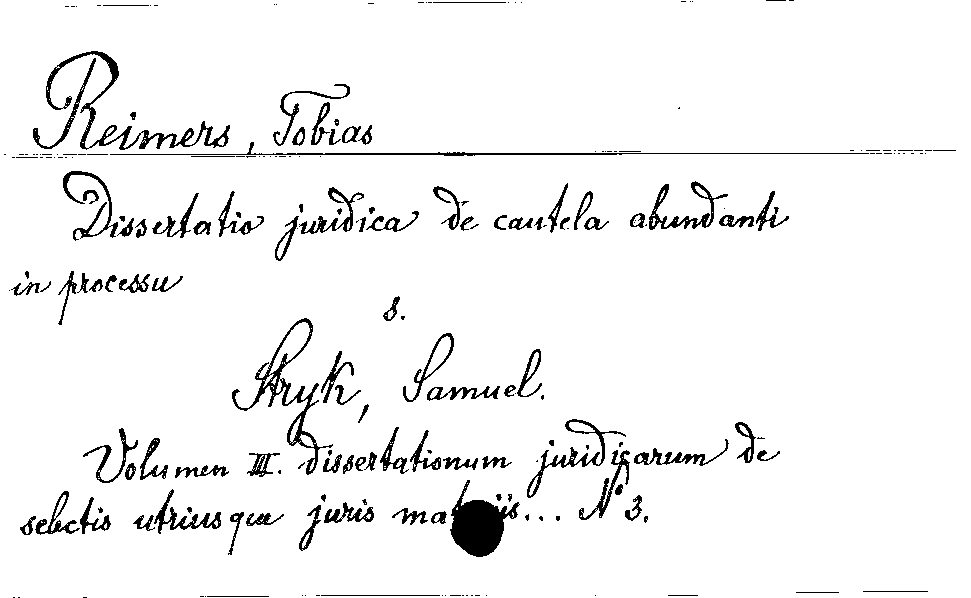 Reimers, Tobias
Dissertatio juridica de cautela abundanti
in processu
s.
Stryk, Samuel.
Volumen III. dissertationum juridicarum de
selectis utriusque juris ... N° 3.